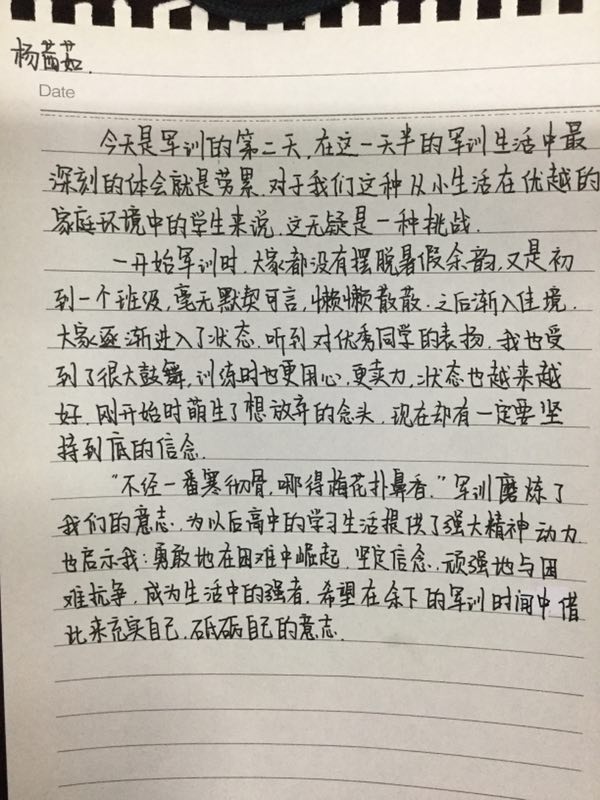 杨茜茹.
Date
今天是军训的第二天,在这一天半的军训生活中最
深刻的体会就是劳累.对于我们这种从小生活在优越的
家庭环境中的学生来说,这无疑是一种挑战.
一开始军训时,大家都没有摆脱暑假余韵,又是初
到一个班级,毫无默契可言,懒懒散散.之后渐入佳境.
大家逐渐进入了状态.听到对优秀同学的表扬.我也受
到了很大鼓舞,训练时也更用心,更卖力,状态也越来越
好.刚开始时萌生了想放弃的念头,现在却有一定要坚
持到底的信念.
“不经一番寒彻骨,哪得梅花扑鼻香.”军训磨炼了
我们的意志,为以后高中的学习生活提供了强大精神动力
也启示我:勇敢地在困难中崛起,坚定信念,顽强地与困
难抗争,成为生活中的强者.希望在余下的军训时间中借
此来充实自己,砥砺自己的意志.